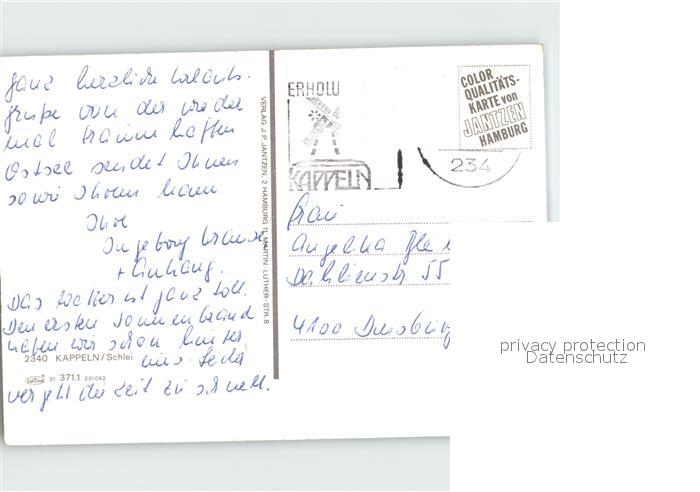 ganz herzliche Urlaubs-
grüße von der wieder
mal traumhaften
Ostsee sendet Ihnen
sowie Ihrem Mann
Ihre
Ingeborg
+ Anhang.
Das Wetter ist ganz toll.
Den ersten Sonnenbrand
haben wir schon hinter
uns. Leider
vergeht die Zeit zu schnell.
2340 KAPPELN/Schlei
31 371.1 231042
VERLAG J. P. JANTZEN, 2 HAMBURG 11, MARTIN-LUTHER-STR. 8
ERHOLU
KAPPELN
234
COLOR
QUALITÄTS-
KARTE von
JANTZEN
HAMBURG
Frau
Angelika
Dahlienstr 55
4100 Duisburg
privacy protection
Datenschutz